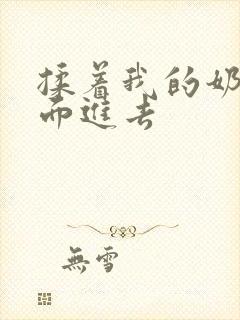 揉着我的奶
而進去
無雪